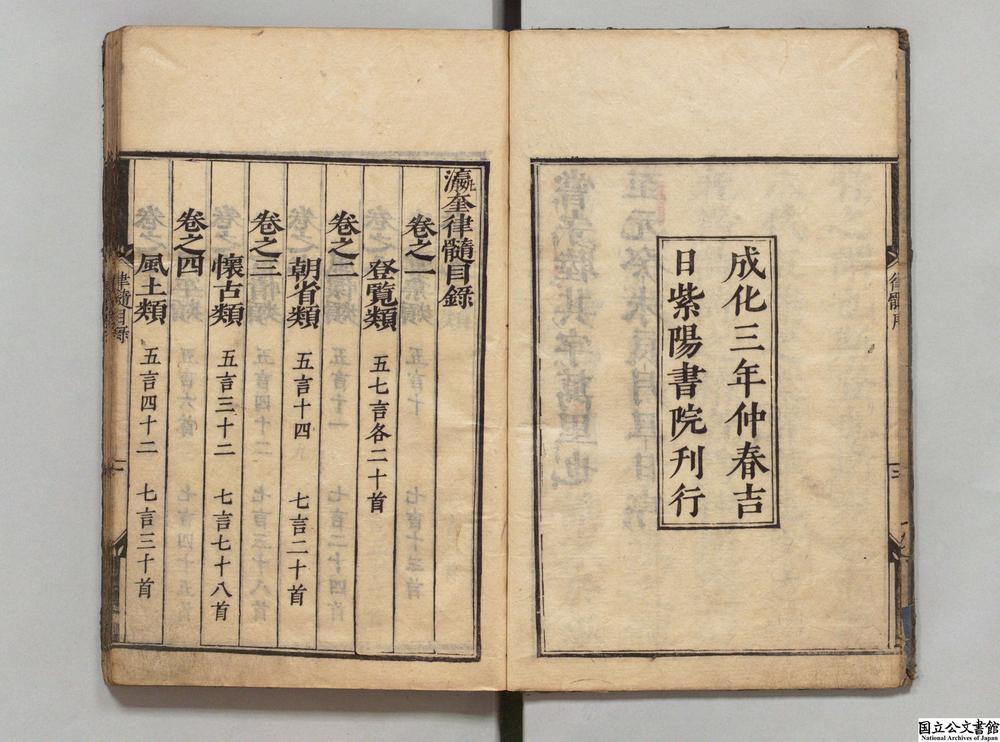 成化三年仲春吉
日紫陽書院刊行
瀛奎律髓目錄
卷之一
登覽類 五七言各二十首
卷之二
朝省類 五言十四 七言二十首
卷之三
懷古類 五言三十二 七言七十八首
卷之四
風土類 五言四十二 七言三十首
律髓目錄
国立公文書館
National Archives of Japan